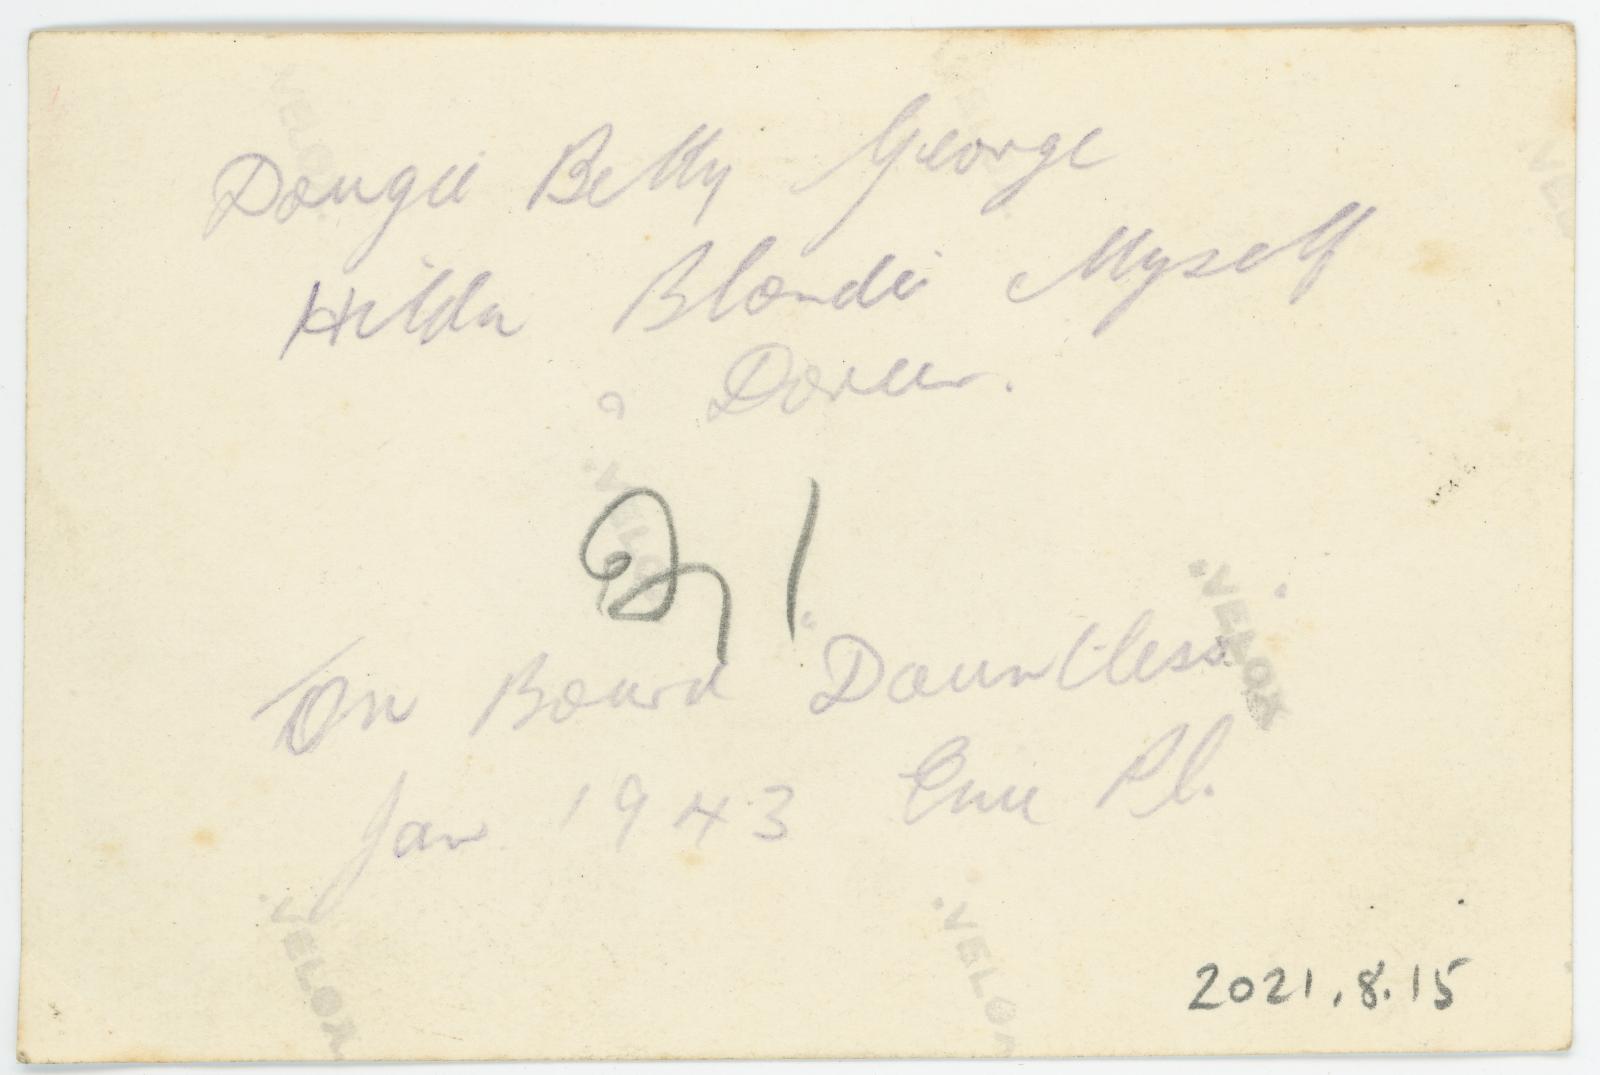 Dougie Betty George
Hilda Blondie Myself
Doreen.
On Board "Dauntless"
Jan 1943 Emu Pl.
2021.8.15
VELOX
VELOX
VELOX
VELOX
VELOX